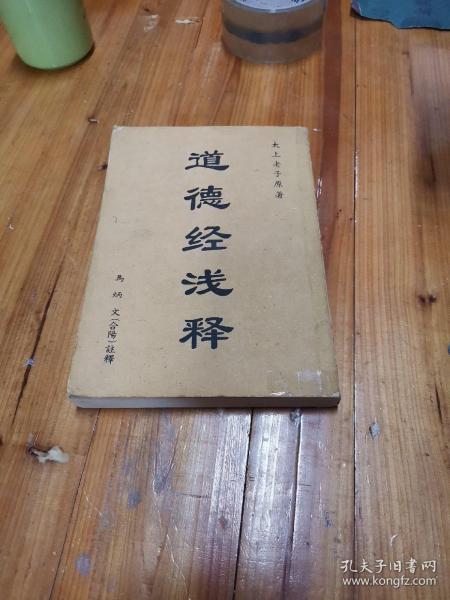 太上老子原著
道德经浅释
馬炳文(合陽)註釋
孔夫子旧书网
www.kongfz.com